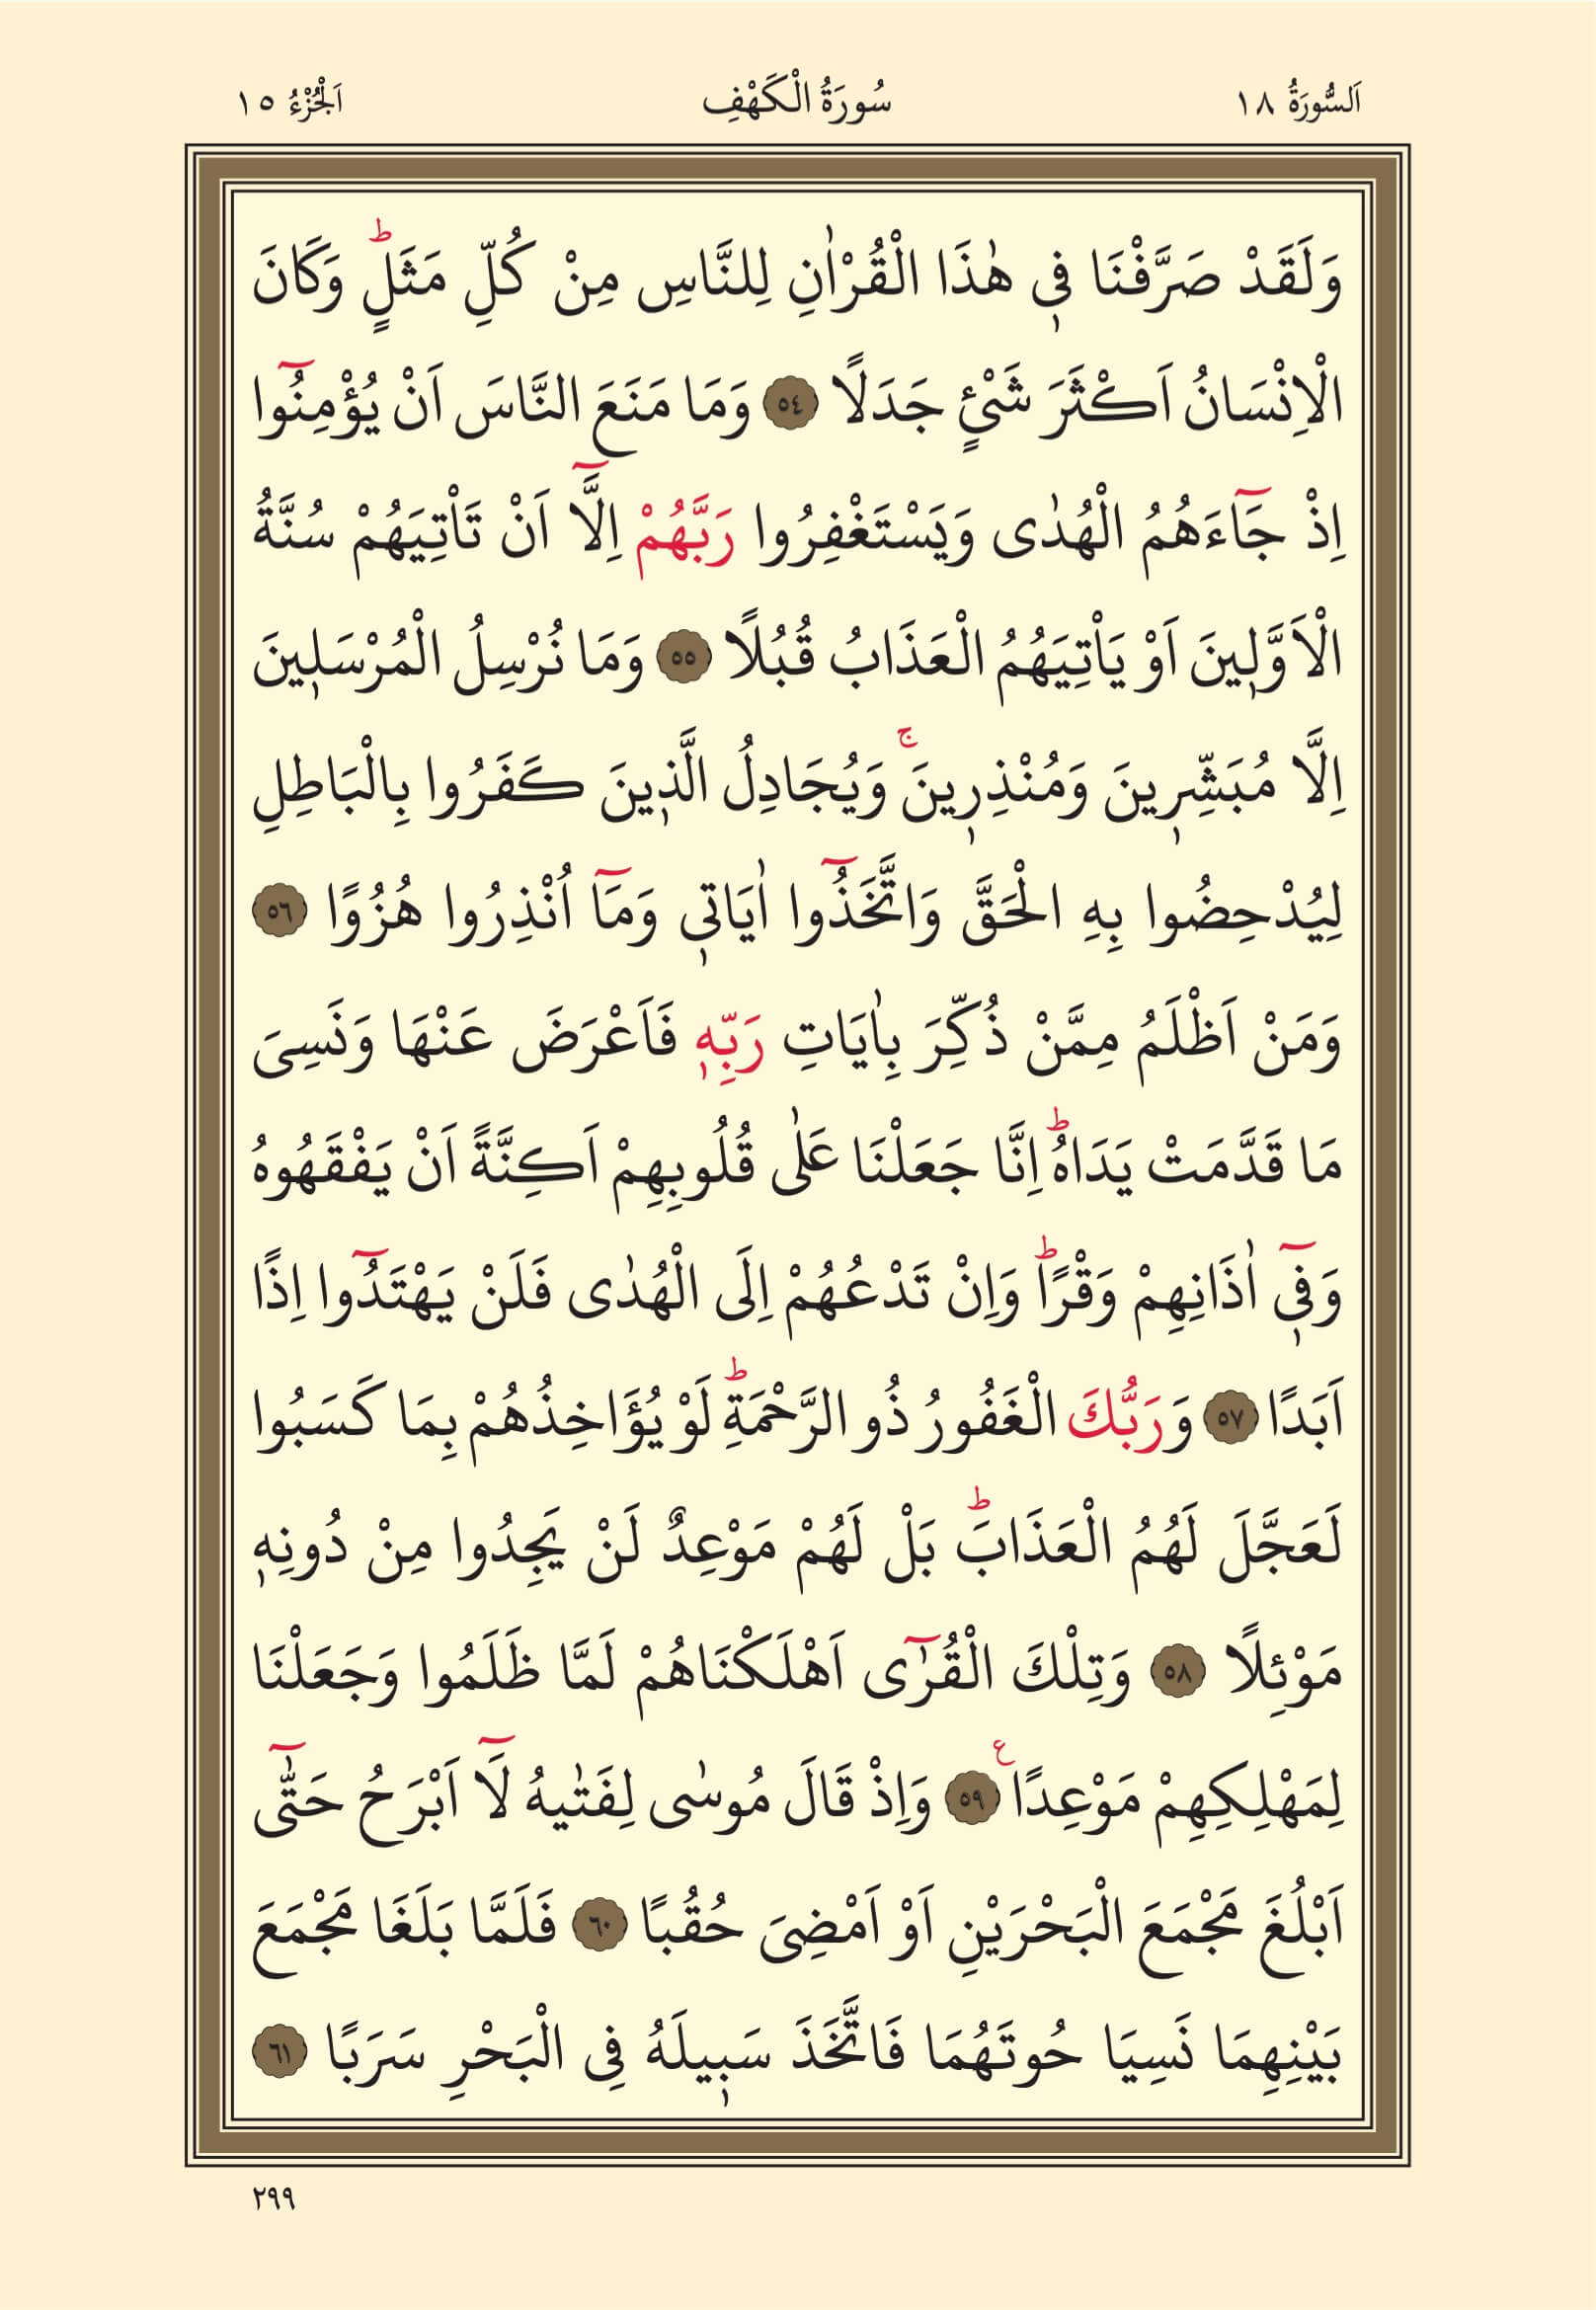 اَلسُّورَةُ ١٨ سُورَةُ الْكَهْفِ اَلْجُزْءُ ١٥
وَلَقَدْ صَرَّفْنَا فٖي هٰذَا الْقُرْاٰنِ لِلنَّاسِ مِنْ كُلِّ مَثَلٍؕ وَكَانَ
الْاِنْسَانُ اَكْثَرَ شَيْئٍ جَدَلًا ﴿٥٤﴾ وَمَا مَنَعَ النَّاسَ اَنْ يُؤْمِنُٓوا
اِذْ جَٓاءَهُمُ الْهُدٰى وَيَسْتَغْفِرُوا رَبَّهُمْ اِلَّٓا اَنْ تَاْتِيَهُمْ سُنَّةُ
الْاَوَّلٖينَ اَوْ يَاْتِيَهُمُ الْعَذَابُ قُبُلًا ﴿٥٥﴾ وَمَا نُرْسِلُ الْمُرْسَلٖينَ
اِلَّا مُبَشِّرٖينَ وَمُنْذِرٖينَۚ وَيُجَادِلُ الَّذٖينَ كَفَرُوا بِالْبَاطِلِ
لِيُدْحِضُوا بِهِ الْحَقَّ وَاتَّخَذُٓوا اٰيَاتٖي وَمَٓا اُنْذِرُوا هُزُوًا ﴿٥٦﴾
وَمَنْ اَظْلَمُ مِمَّنْ ذُكِّرَ بِاٰيَاتِ رَبِّهٖ فَاَعْرَضَ عَنْهَا وَنَسِىَ
مَا قَدَّمَتْ يَدَاهُؕ اِنَّا جَعَلْنَا عَلٰى قُلُوبِهِمْ اَكِنَّةً اَنْ يَفْقَهُوهُ
وَفٖٓي اٰذَانِهِمْ وَقْرًاؕ وَاِنْ تَدْعُهُمْ اِلَى الْهُدٰى فَلَنْ يَهْتَدُٓوا اِذًا
اَبَدًا ﴿٥٧﴾ وَرَبُّكَ الْغَفُورُ ذُو الرَّحْمَةِؕ لَوْ يُؤَاخِذُهُمْ بِمَا كَسَبُوا
لَعَجَّلَ لَهُمُ الْعَذَابَؕ بَلْ لَهُمْ مَوْعِدٌ لَنْ يَجِدُوا مِنْ دُونِهٖ
مَوْئِلًا ﴿٥٨﴾ وَتِلْكَ الْقُرٰٓى اَهْلَكْنَاهُمْ لَمَّا ظَلَمُوا وَجَعَلْنَا
لِمَهْلِكِهِمْ مَوْعِدًا ع ﴿٥٩﴾ وَاِذْ قَالَ مُوسٰى لِفَتٰيهُ لَٓا اَبْرَحُ حَتّٰٓى
اَبْلُغَ مَجْمَعَ الْبَحْرَيْنِ اَوْ اَمْضِىَ حُقُبًا ﴿٦٠﴾ فَلَمَّا بَلَغَا مَجْمَعَ
بَيْنِهِمَا نَسِيَا حُوتَهُمَا فَاتَّخَذَ سَبٖيلَهُ فِى الْبَحْرِ سَرَبًا ﴿٦١﴾
٢٩٩